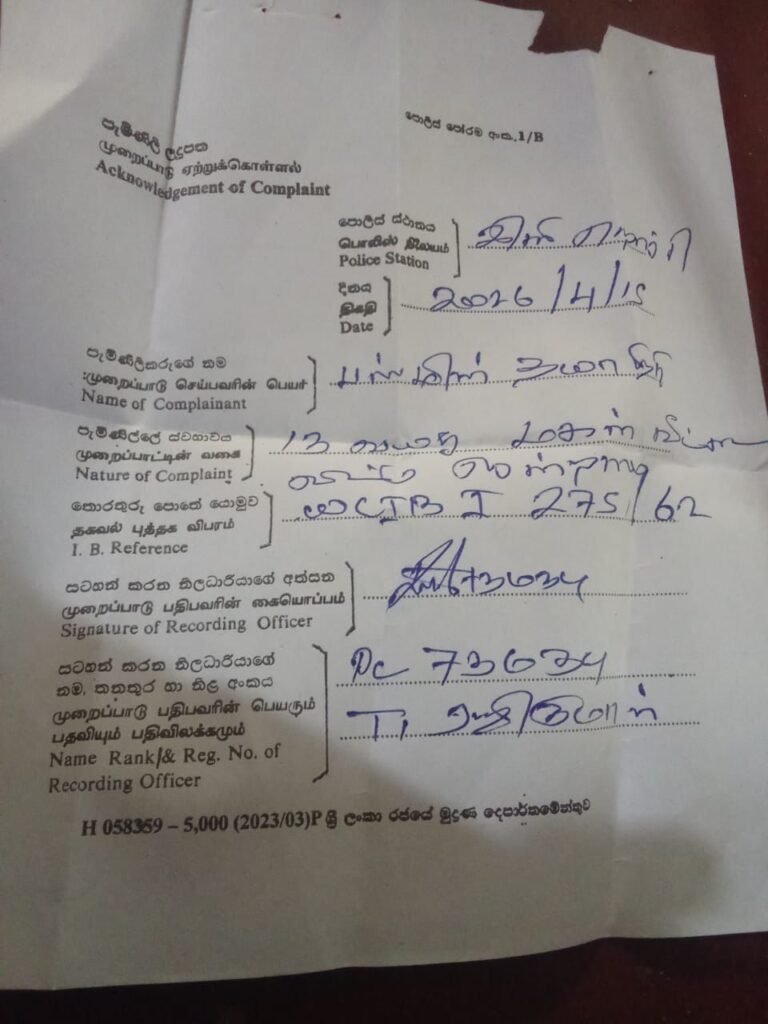 පොලිස් පෝරම අංක.1/B
පැමිණිලි ලදුපත
முறைப்பாடு ஏற்றுக்கொள்ளல்
Acknowledgement of Complaint
පොලිස් ස්ථානය
பொலிஸ் நிலையம்
Police Station
දිනය
திகதி
Date
2026/4/15
පැමිණිලිකරුගේ නම
முறைப்பாடு செய்பவரின் பெயர்
Name of Complainant
පැමිණිල්ලේ ස්වභාවය
முறைப்பாட்டின் வகை
Nature of Complaint
13 வயது மகன்
තොරතුරු පොතේ යොමුව
தகவல் புத்தக விபரம்
I. B. Reference
CIB I 275/62
සටහන් කරන නිලධාරියාගේ අත්සන
முறைப்பாடு பதிபவரின் கையொப்பம்
Signature of Recording Officer
සටහන් කරන නිලධාරියාගේ
නම, තනතුර හා නිල අංකය
முறைப்பாடு பதிபவரின் பெயரும்
பதவியும் பதிவிலக்கமும்
Name Rank/& Reg. No. of
Recording Officer
PC 73634
H 058359 – 5,000 (2023/03)P ශ්‍රී ලංකා රජයේ මුද්‍රණ දෙපාර්තමේන්තුව